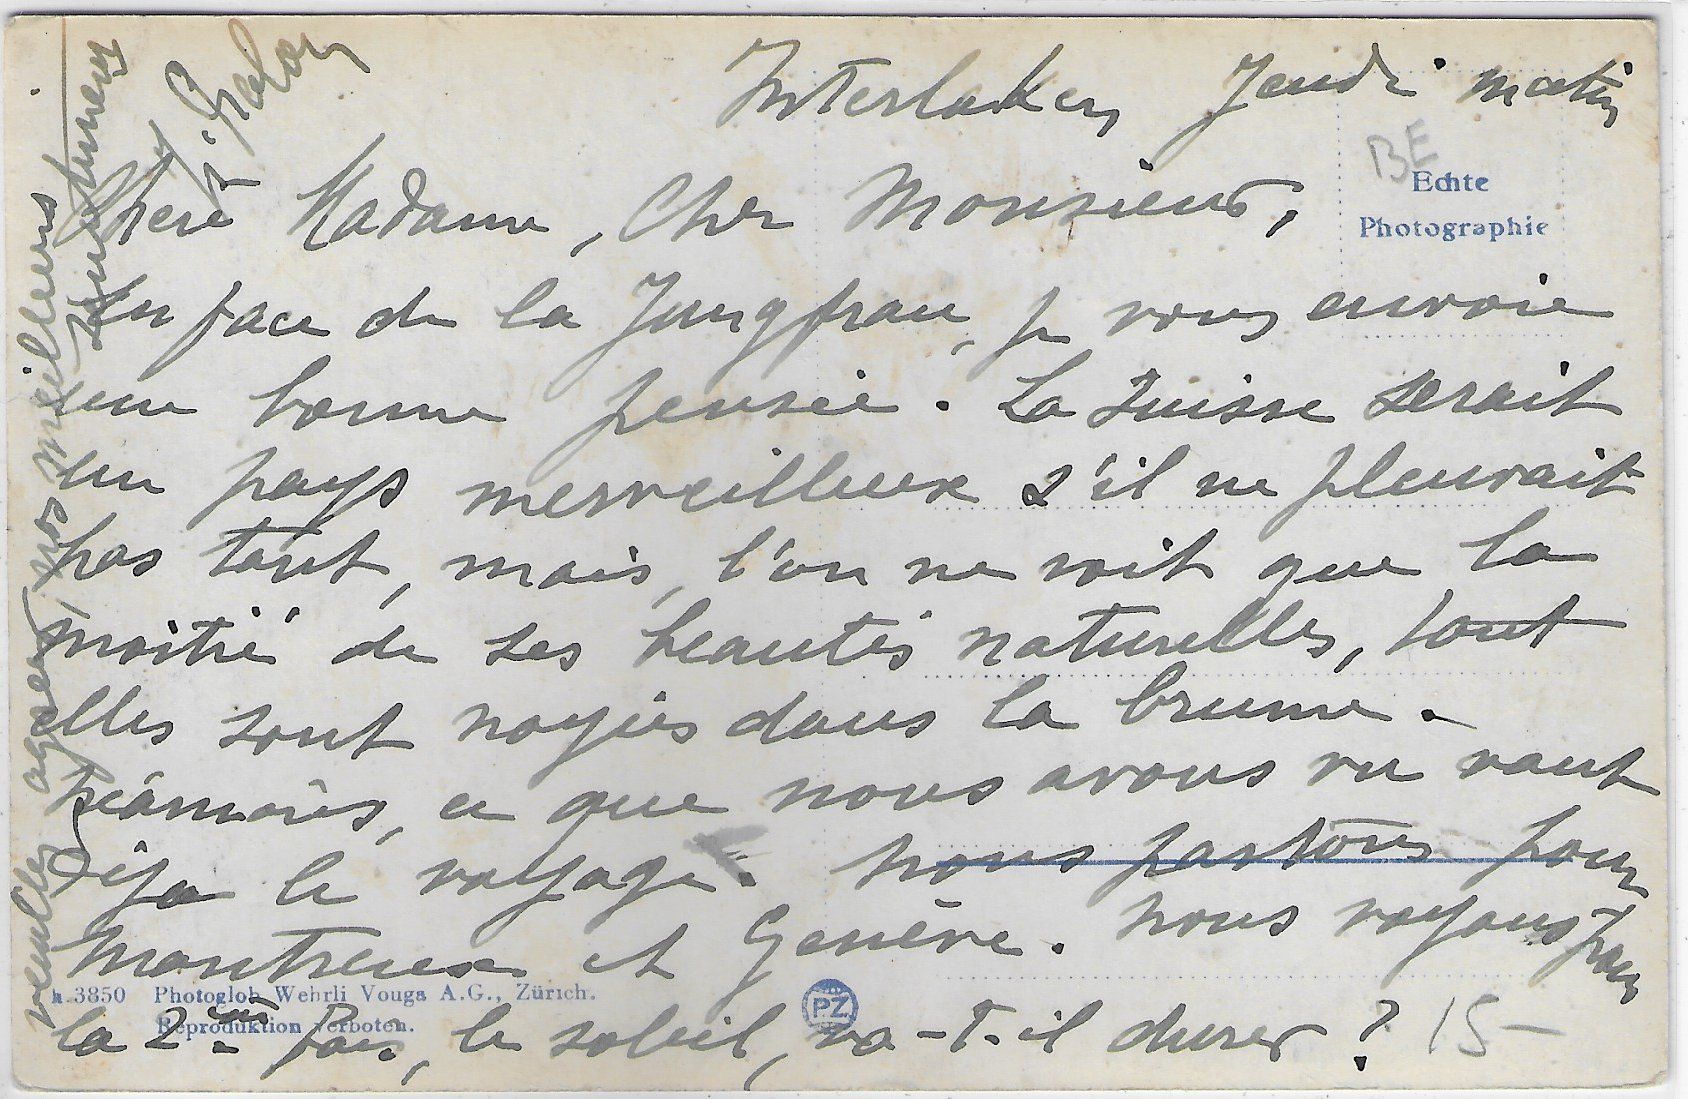 Interlaken Jeudi matin
BE
Echte
Photographie
Chère Madame, Cher Monsieur,
En face de la Jungfrau, je vous envoie
une bonne pensée. La Suisse serait
un pays merveilleux s'il ne pleuvait
pas tant, mais, l'on ne voit que la
moitié de ses beautés naturelles, tant
elles sont noyées dans la brume.
Néanmoins, ce que nous avons vu vaut
déja le voyage. Nous partons pour
Montreux et Genève. Nous voyons pour
la 2ème fois, le soleil, va-t-il durer ?
15-
k.3850 Photoglob Wehrli Vouga A.G., Zürich.
Reproduktion verboten.
PZ
Veuillez agréer, nos meilleurs
sentiments